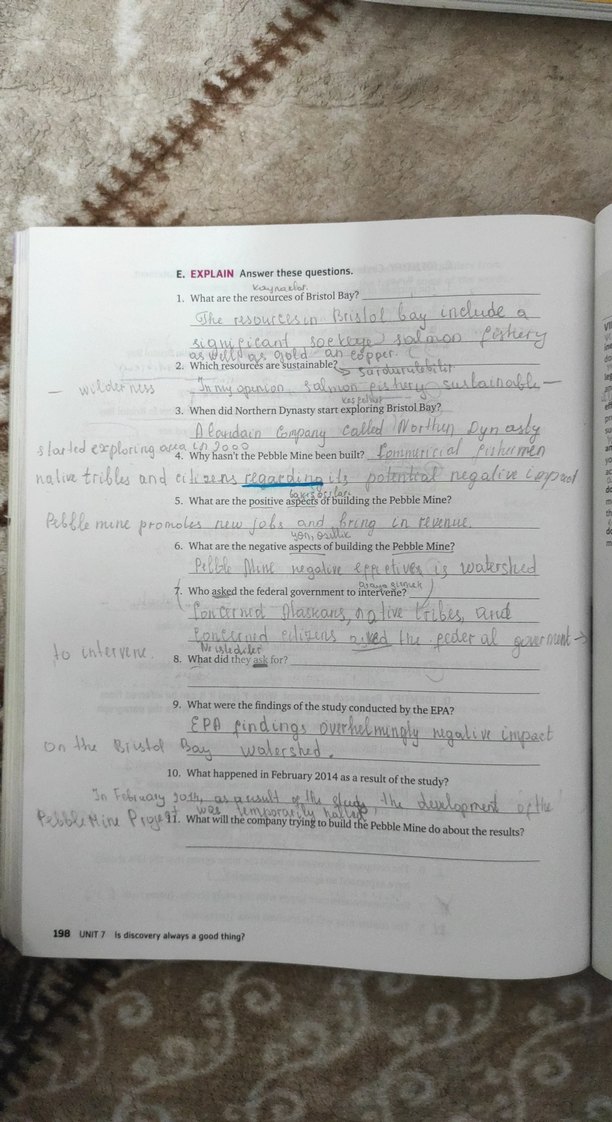 E. EXPLAIN Answer these questions.
kaynaklar
1. What are the resources of Bristol Bay?
The resources in Bristol bay include a
significant sockeye salmon fishery
as well as gold an copper.
2. Which resources are sustainable?
sürdürülebilir
— wilderness In my opinion, salmon fishery sustainable —
3. When did Northern Dynasty start exploring Bristol Bay?
A Company called Northen Dynasty
started exploring area in 2000
4. Why hasn't the Pebble Mine been built? Commuricial fishermen
native tribles and citizens regarding its potential negative impact
5. What are the positive aspects of building the Pebble Mine?
Pebble mine promotes new jobs and bring in revenue.
6. What are the negative aspects of building the Pebble Mine?
Pebble Mine negative effectives is watershed
7. Who asked the federal government to intervene?
Concerned Alaskans, native tribes, and
concerned citizens asked the federal goverment →
to intervene.
Ne istediler
8. What did they ask for?
9. What were the findings of the study conducted by the EPA?
EPA findings overhelmingly negative impact
on the Bristol Bay watershed.
10. What happened in February 2014 as a result of the study?
In February 2014, as a result of the study, the development of the
Pebble Mine Project was temporarily halted
11. What will the company trying to build the Pebble Mine do about the results?
198 UNIT 7 Is discovery always a good thing?